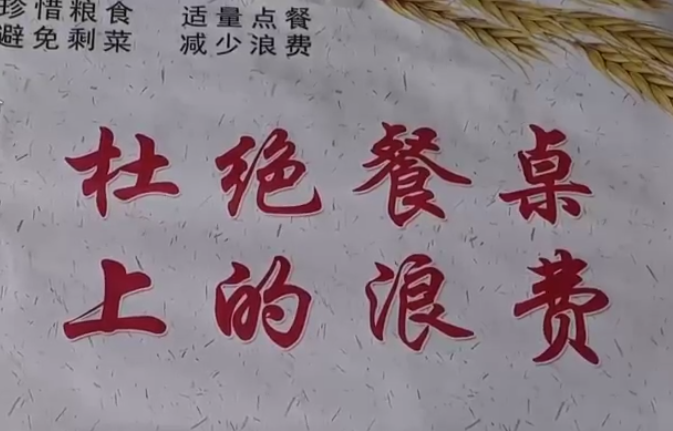 珍惜粮食 适量点餐
避免剩菜 减少浪费
杜绝餐桌
上的浪费